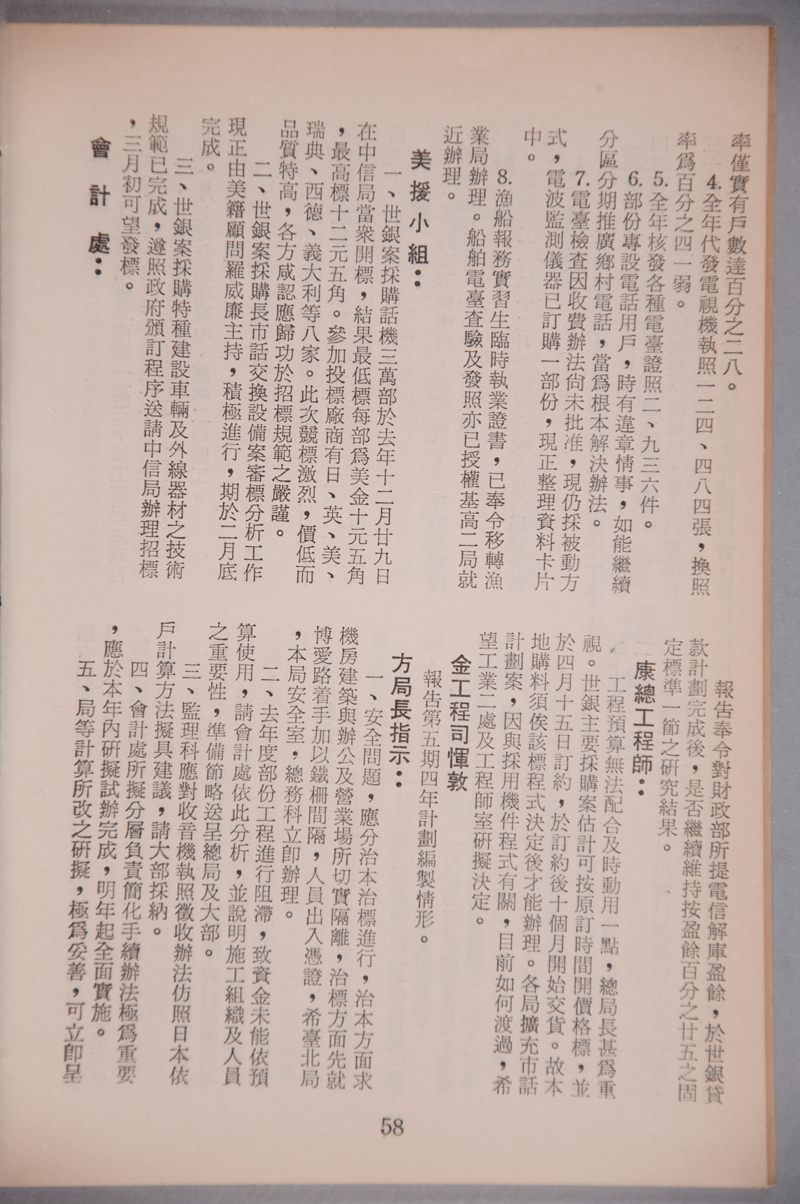 率僅實有戶數達百分之二八。
4.全年代發電視機執照一二四、四八四張，換照
率爲百分之四一弱。
5.全年核發各種電臺證照二、九三六件。
6.部份專設電話用戶，時有違章情事，如能繼續
分區分期推廣鄉村電話，當爲根本解決辦法。
7.電臺檢查因收費辦法尙未批准，現仍採被動方
式，電波監測儀器已訂購一部份，現正整理資料卡片
中。
8.漁船報務實習生臨時執業證書，已奉令移轉漁
業局辦理。船舶電臺查驗及發照亦已授權基高二局就
近辦理。
美援小組：
一、世銀案採購話機三萬部於去年十二月廿九日
在中信局當衆開標，結果最低標每部爲美金十元五角
，最高標十二元五角。參加投標廠商有日、英、美、
瑞典、西德、義大利等八家。此次競標激烈，價低而
品質特高，各方咸認應歸功於招標規範之嚴謹。
二、世銀案採購長市話交換設備案審標分析工作
現正由美籍顧問羅威廉主持，積極進行，期於二月底
完成。
三、世銀案採購特種建設車輛及外線器材之技術
規範已完成，遵照政府頒訂程序送請中信局辦理招標
，三月初可望發標。
會計處：
報告奉令對財政部所提電信解庫盈餘，於世銀貸
款計劃完成後，是否繼續維持按盈餘百分之廿五之固
定標準一節之硏究結果。
康總工程師：
工程預算無法配合及時動用一點，總局長甚爲重
視。世銀主要採購案估計可按原訂時間開價格標，並
於四月十五日訂約，於訂約後十個月開始交貨。故本
地購料須俟該標程式決定後才能辦理。各局擴充市話
計劃案，因與採用機件程式有關，目前如何渡過，希
望工業二處及工程師室硏擬決定。
金工程司惲敦
報告第五期四年計劃編製情形。
方局長指示：
一、安全問題，應分治本治標進行，治本方面求
機房建築與辦公及營業場所切實隔離，治標方面先就
博愛路着手加以鐵柵間隔，人員出入憑證，希臺北局
，本局安全室，總務科立卽辦理。
二、去年度部份工程進行阻滯，致資金未能依預
算使用，請會計處依此分析，並說明施工組織及人員
之重要性，準備節略送呈總局及大部。
三、監理科應對收音機執照徵收辦法仿照日本依
戶計算方法擬具建議，請大部採納。
四、會計處所擬分層負責簡化手續辦法極爲重要
，應於本年內硏擬試辦完成，明年起全面實施。
五、局等計算所改之硏擬，極爲妥善，可立卽呈
58